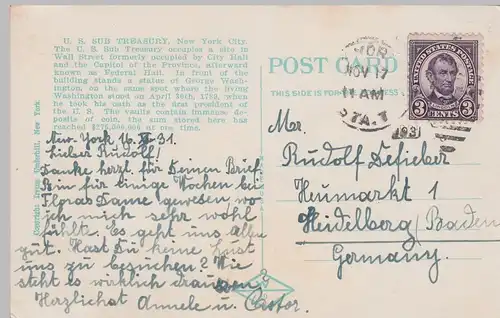 U. S. SUB TREASURY, New York City.
The U. S. Sub Treasury occupies a site in
Wall Street formerly occupied by City Hall
and the Capitol of the Province, afterward
known as Federal Hall. In front of the
building stands a statue of George Wash-
ington, on the same spot where the living
Washington stood on April 30th, 1789, when
he took his oath as the first president of
the U. S. The vaults contain immense de-
posits of coin, the sum stored here has
reached $276,000,000 at one time.
Copyright Irving Underhill, New York
New-York 16. XI. 31.
Lieber Rudolf!
Danke herzl. für Deinen Brief
Bin für einige Wochen bei
Floras Dame gewesen wo
ich mich sehr wohl
fühlte. Es geht uns Allen
gut. Hast Du keine Lust
uns zu besuchen? Wie
steht es wirklich draussen?
Herzlichst Annele u. Castor.
POST CARD
THIS SIDE IS FOR ADDRESS
YORK
NOV 17
11 AM
STA. T
1931
UNITED STATES POSTAGE
LINCOLN
3 CENTS 3
Mr.
Rudolf Zefieber
Neumarkt 1
Heidelberg/Baden
Germany.